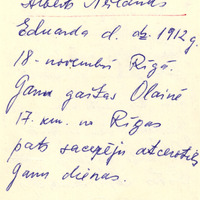 Alberts
Eduarda d. dz. 1912 g.
18. novembrī Rīgā.
Ganu gaitas Olainē
17. km. no Rīgas
pats sacepēju atceroties
Ganu dienas.